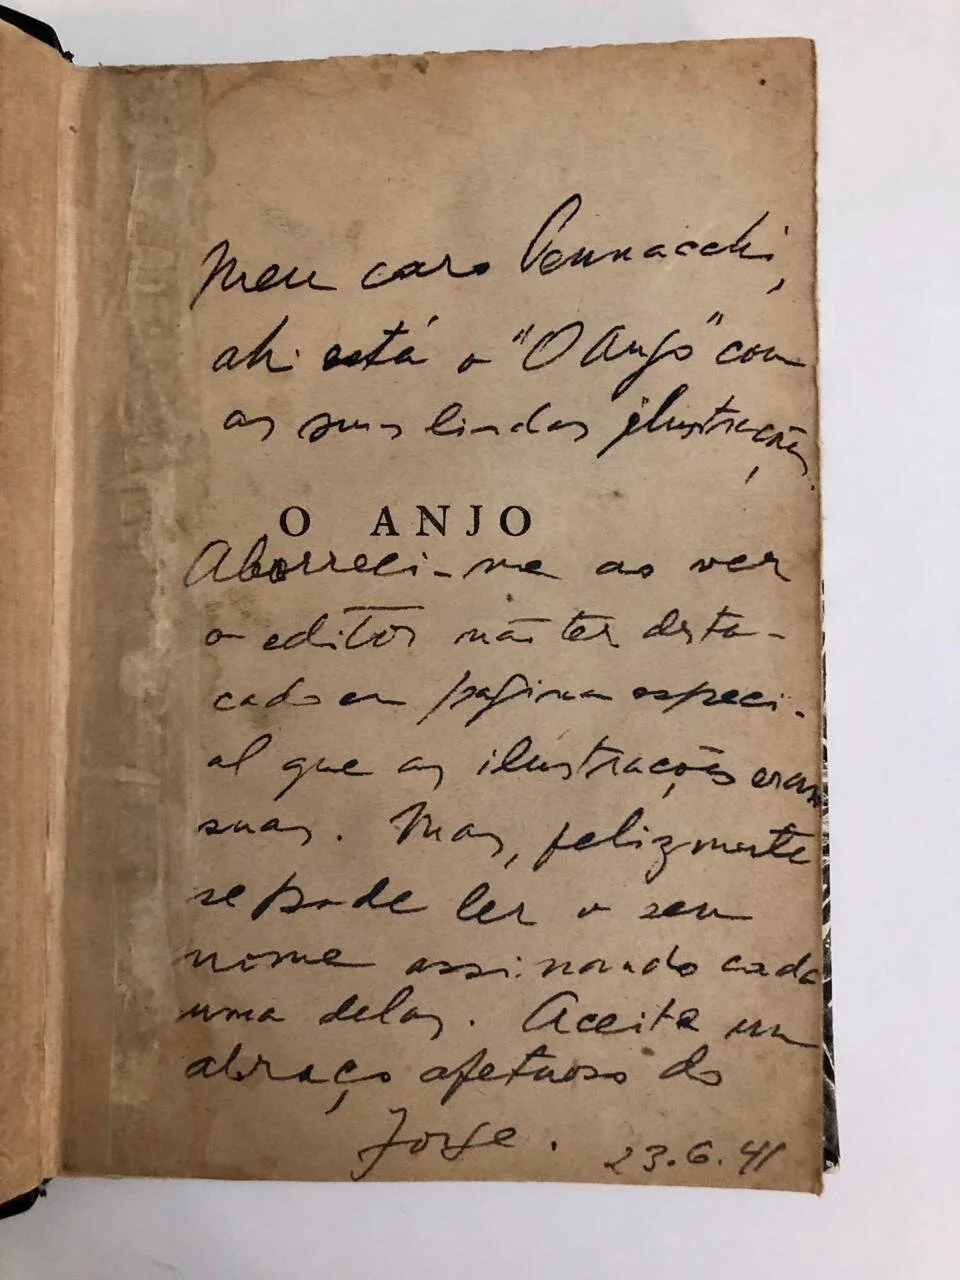 Meu caro Pennacchi,
ahi está o "O Anjo" com
as suas lindas ilustrações.
O ANJO
Aborreci-me ao ver
o editor não ter desta-
cado em pagina especi-
al que as ilustrações eram
suas. Mas, felizmente
se pode ler o seu
nome assinando cada
uma delas. Aceite um
abraço afetuoso do
Jorge.
23.6.41